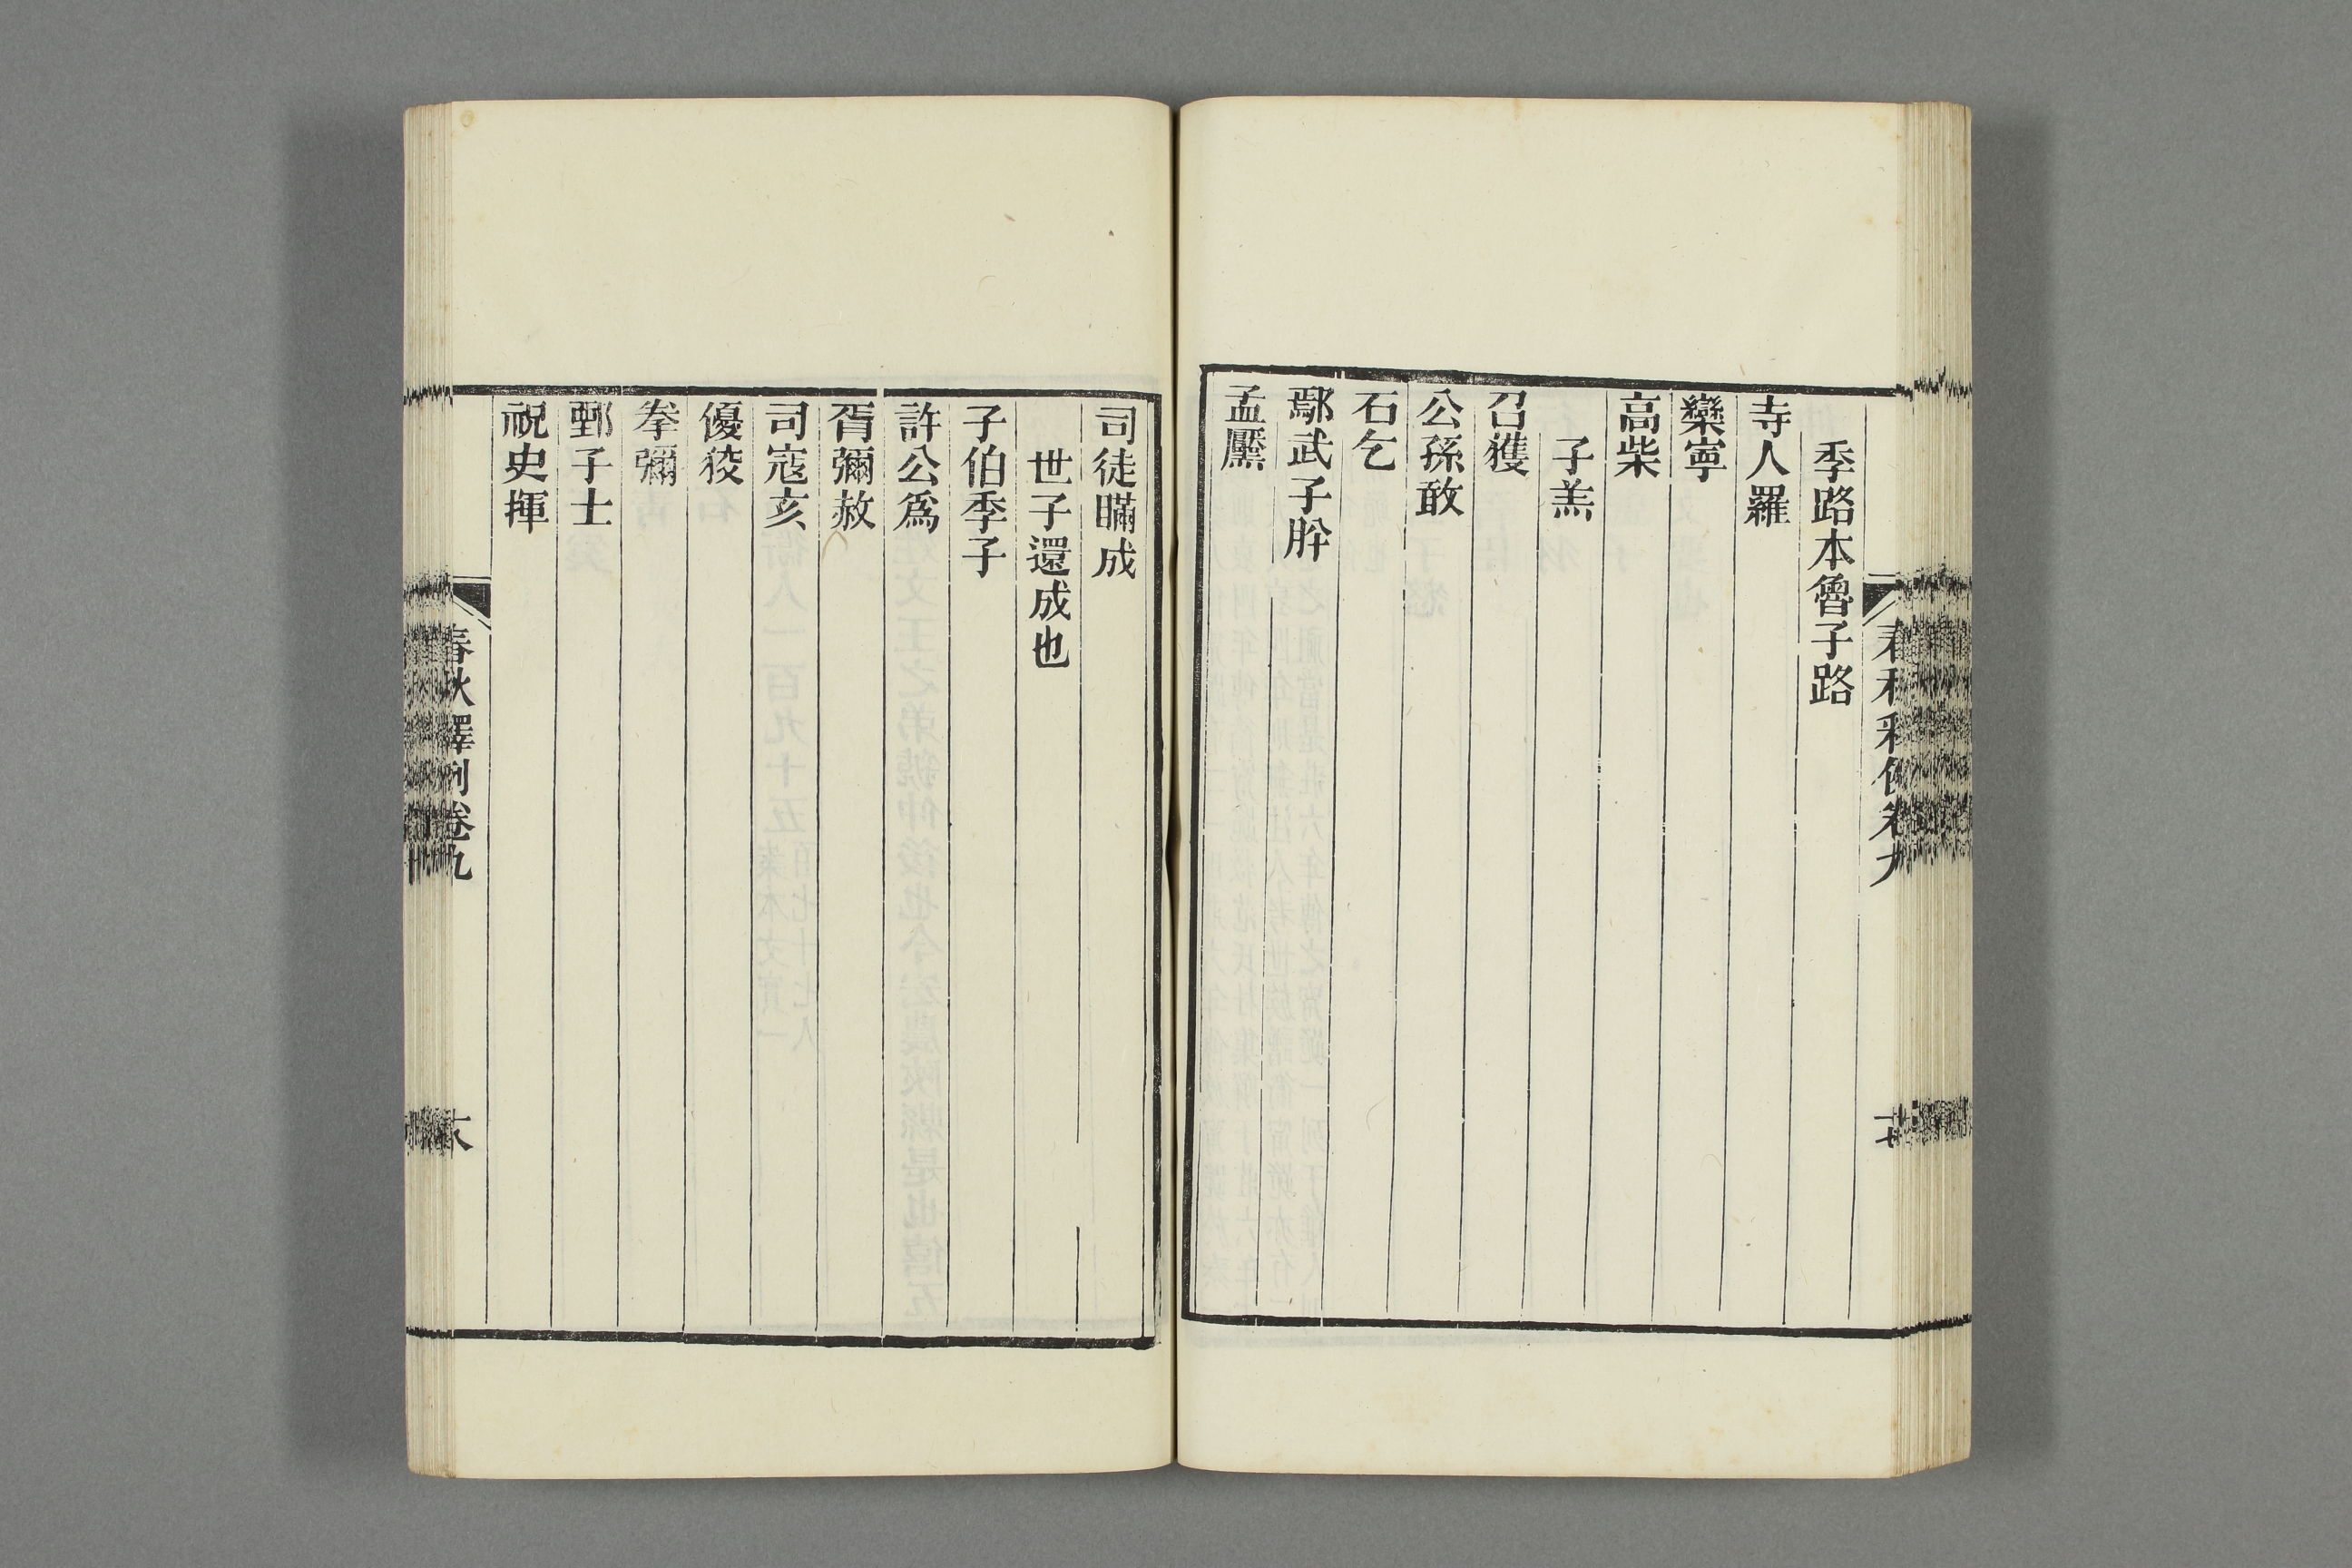 季路本魯子路
寺人羅
欒寧
高柴
子羔
召獲
公孫敢
石乞
鄢武子肸
孟黶
司徒瞞成
世子還成也
子伯季子
許公爲
胥彌赦
司寇亥
優狡
拳彌
鄄子士
祝史揮
春秋釋例卷九